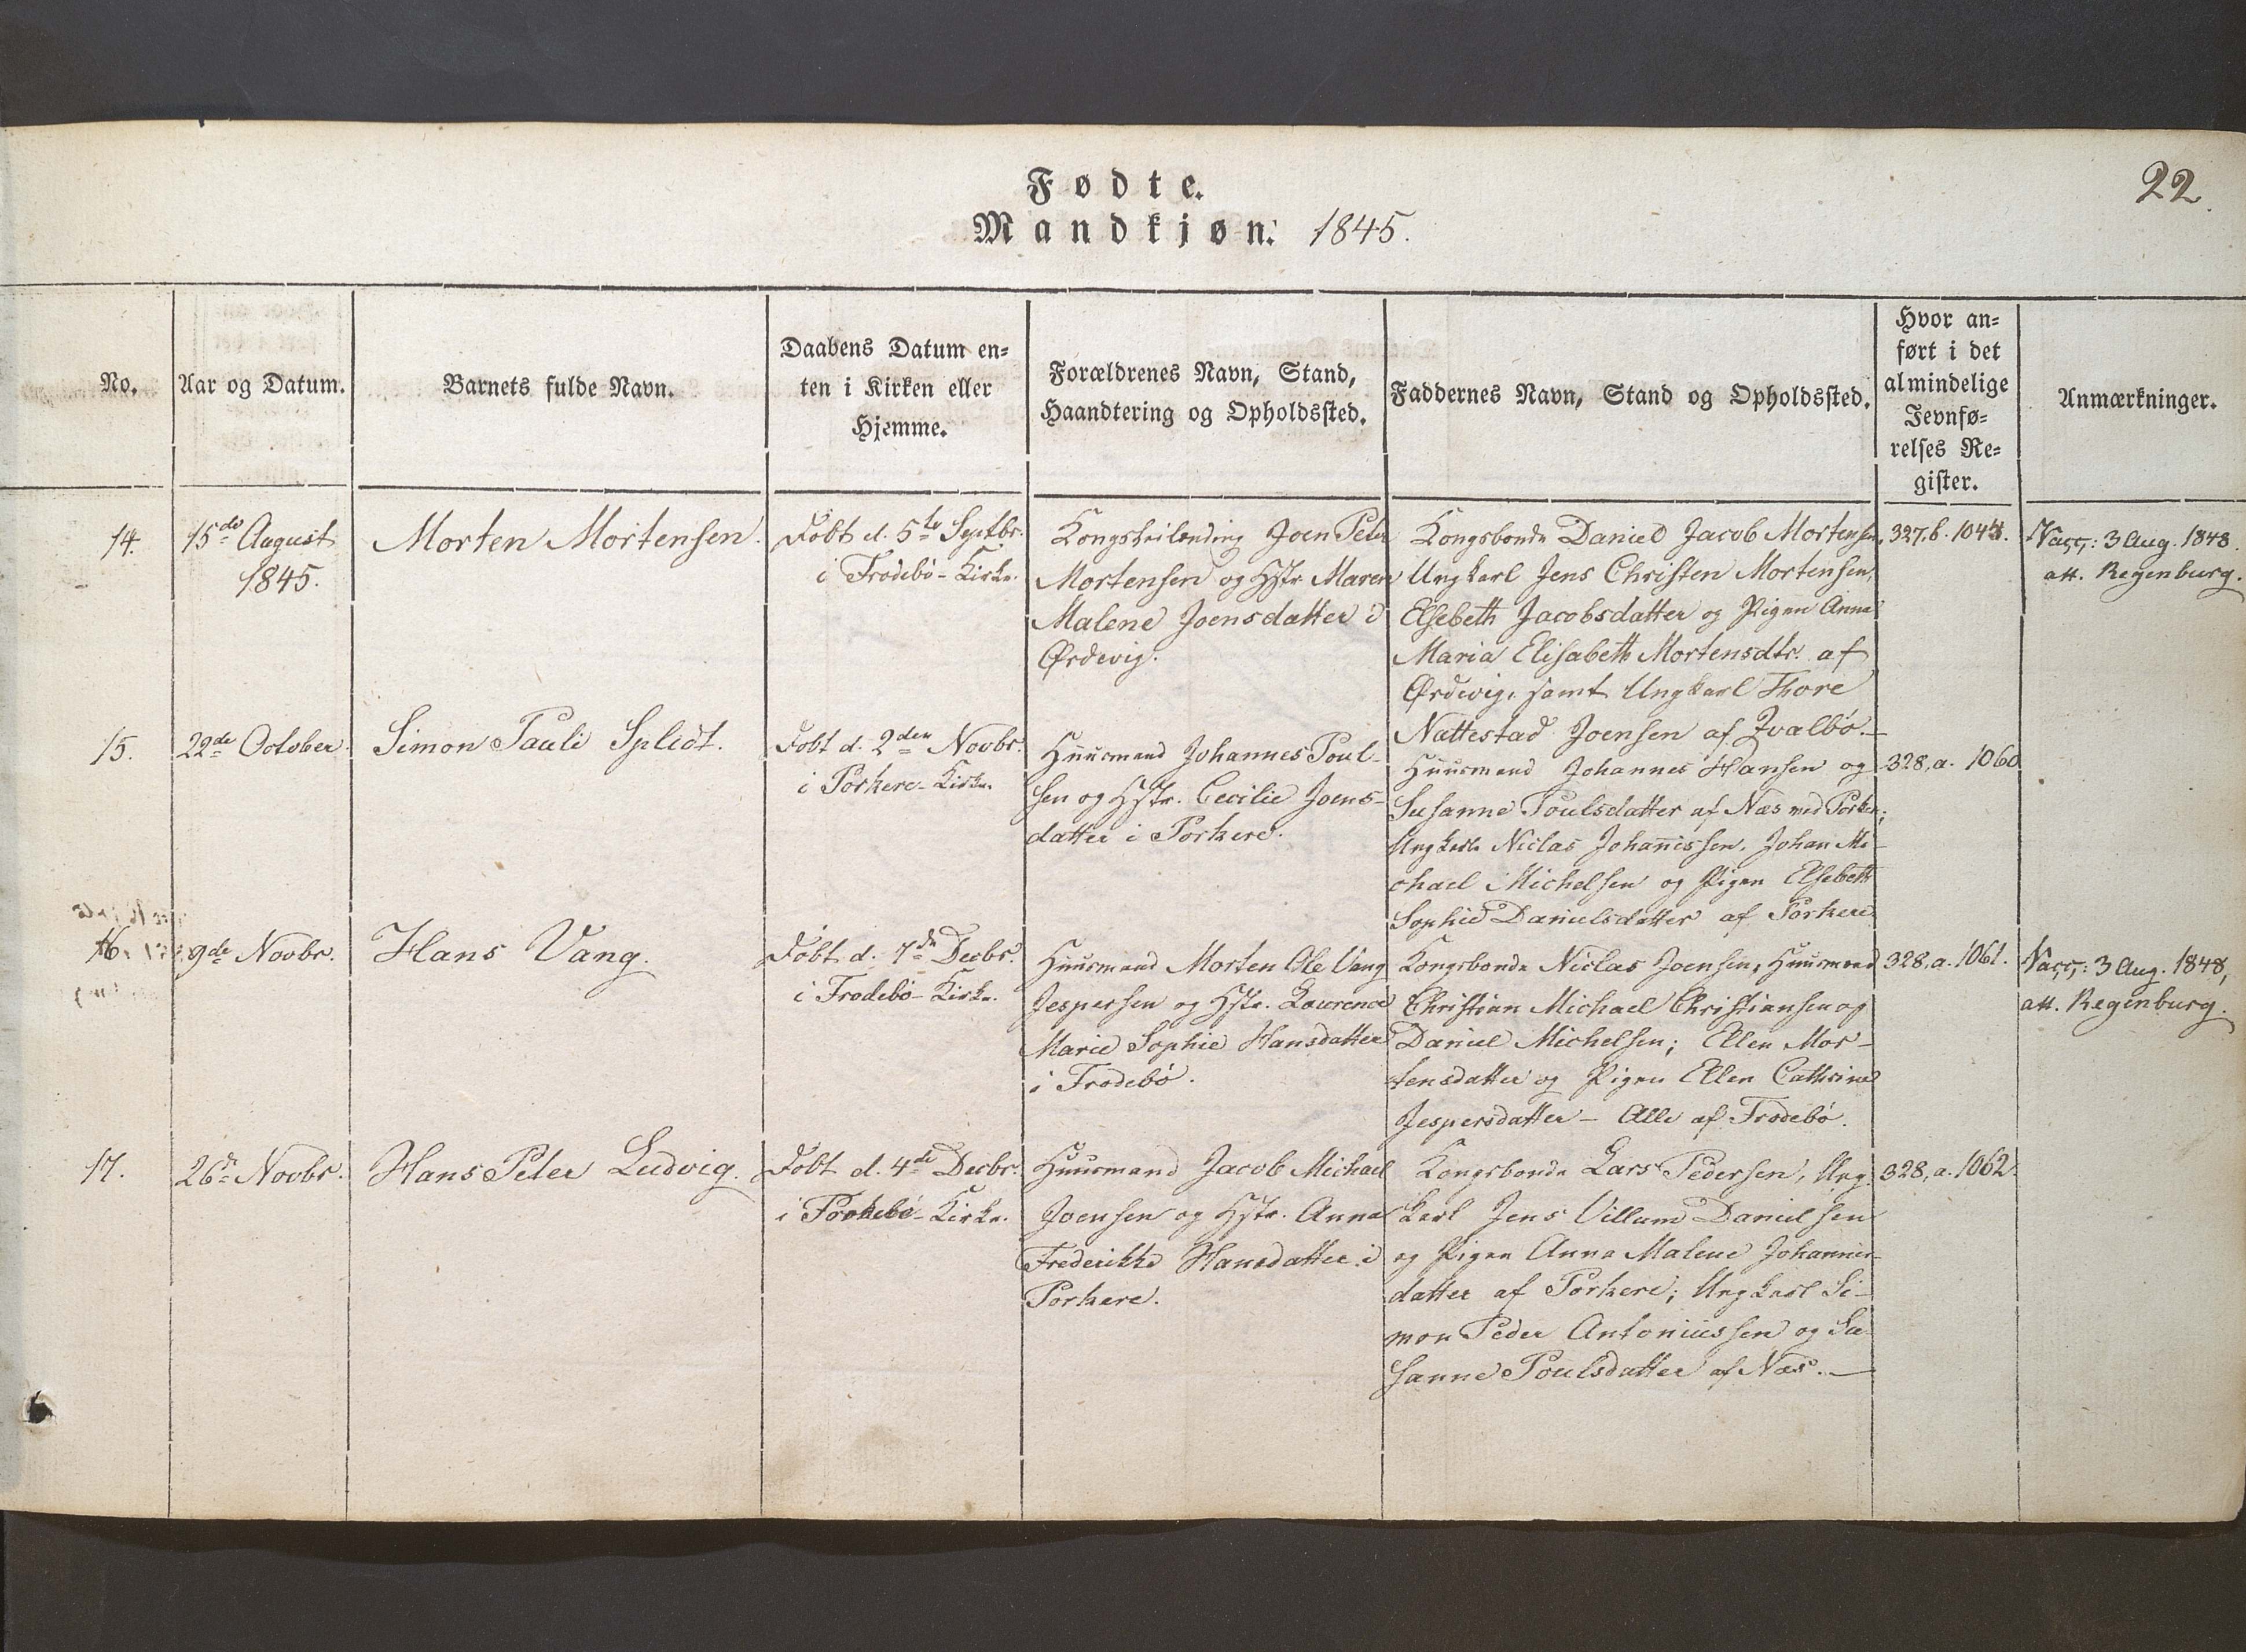 22.
Fødte.
Mandkjøn. 1845.
No.
Aar og Datum.
Barnets fulde Navn.
Daabens Datum en=
ten i Kirken eller
Hjemme.
Forældrenes Navn, Stand,
Haandtering og Opholdssted.
Faddernes Navn, Stand og Opholdssted.
Hvor an=
ført i det
almindelige
Jevnfø=
relses Re=
gister.
Anmærkninger.
14.
15de August
1845.
Morten Mortensen.
Döbt d. 5te Septbr.
i Frodebö-Kirke.
Joen Peter
Mortensen og Hstr. Maren
Malene Joensdatter i
Ørdevig.
Kongsbonde Daniel Jacob Mortensen,
Ungkarl Jens Christen Mortensen,
Elsebeth Jacobsdatter og Pigen Anna
Maria Elisabeth Mortensdtr. af
Ørdevig, samt Ungkarl Thore
Nattestad Joensen af Qvalbö.—
327,b. 1044.
Vacc: 3 Aug. 1848.
att. Regenburg.
15.
22de October.
Simon Pauli Splidt.
Döbt d. 2den Novbr.
i Porkere-Kirke.
Huusmand Johannes Poul-
sen og Hstr. Cecilie Joens-
datter i Porkere.
Huusmand Johannes Hansen og
Susanne Poulsdatter af Næs ved Porkere;
Ungkarle Niclas Johannissen, Johan Mi-
chael Michelsen og Pigen Elsebeth
Sophie Danielsdatter af Porkere
328, a. 1060
16.
9de Novbr.
Hans Vang.
Döbt d. 7de Decbr.
i Frodebö-Kirke.
Huusmand Morten Ole Vang
Jespersen og Hstr. Laurence
Marie Sophie Hansdatter
i Frodebö.
Kongsbonde Niclas Joensen, Huusmænd
Christian Michael Christiansen og
Daniel Michelsen; Ellen Mor-
tensdatter og Pigen Ellen Cathrine
Jespersdatter — Alle af Frodebö.
328, a. 1061.
Vacc: 3 Aug. 1848,
att. Regenburg.
17.
26de Novbr.
Hans Peter Ludvig.
Döbt d. 4de Decbr.
i Kirke.
Huusmand Jacob Michael
Joensen og Hstr. Anna
Frederikke Hansdatter i
Porkere.
Kongsbonde Lars Pedersen, Ung-
karl Jens Villum Danielsen
og Pigen Anna Malene Johannes-
datter af Porkere; Ungkarl Si-
mon Peder Antoniussen og Su-
sanne Poulsdatter af Næs.—
328, a. 1062.